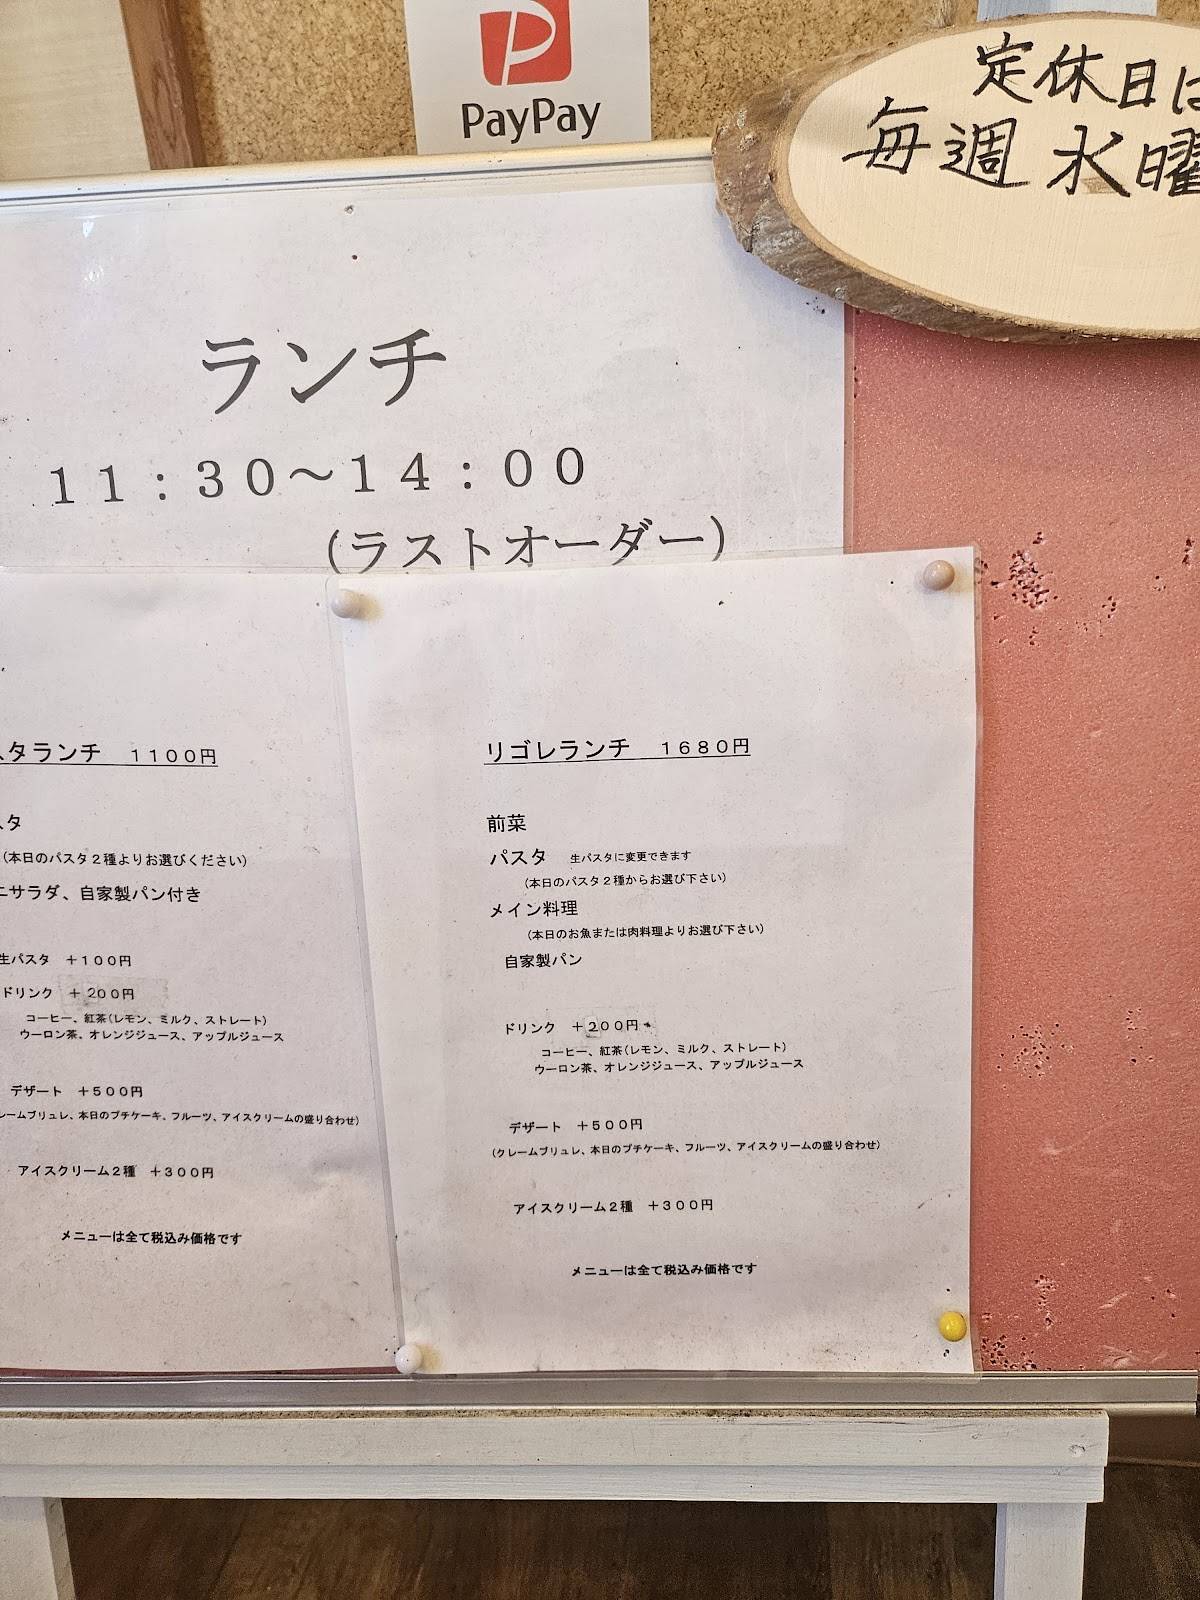 PayPay
定休日は
毎週水曜
ランチ
11：30～14：00
(ラストオーダー)
スタランチ　1100円
スタ
(本日のパスタ２種よりお選びください)
ニサラダ、自家製パン付き
生パスタ　＋100円
ドリンク　＋200円
コーヒー、紅茶(レモン、ミルク、ストレート)
ウーロン茶、オレンジジュース、アップルジュース
デザート　＋500円
レームブリュレ、本日のプチケーキ、フルーツ、アイスクリームの盛り合わせ)
アイスクリーム２種　＋300円
メニューは全て税込み価格です
リゴレランチ　1680円
前菜
パスタ　生パスタに変更できます
(本日のパスタ２種からお選び下さい)
メイン料理
(本日のお魚または肉料理よりお選び下さい)
自家製パン
ドリンク　＋200円
コーヒー、紅茶(レモン、ミルク、ストレート)
ウーロン茶、オレンジジュース、アップルジュース
デザート　＋500円
(クレームブリュレ、本日のプチケーキ、フルーツ、アイスクリームの盛り合わせ)
アイスクリーム２種　＋300円
メニューは全て税込み価格です